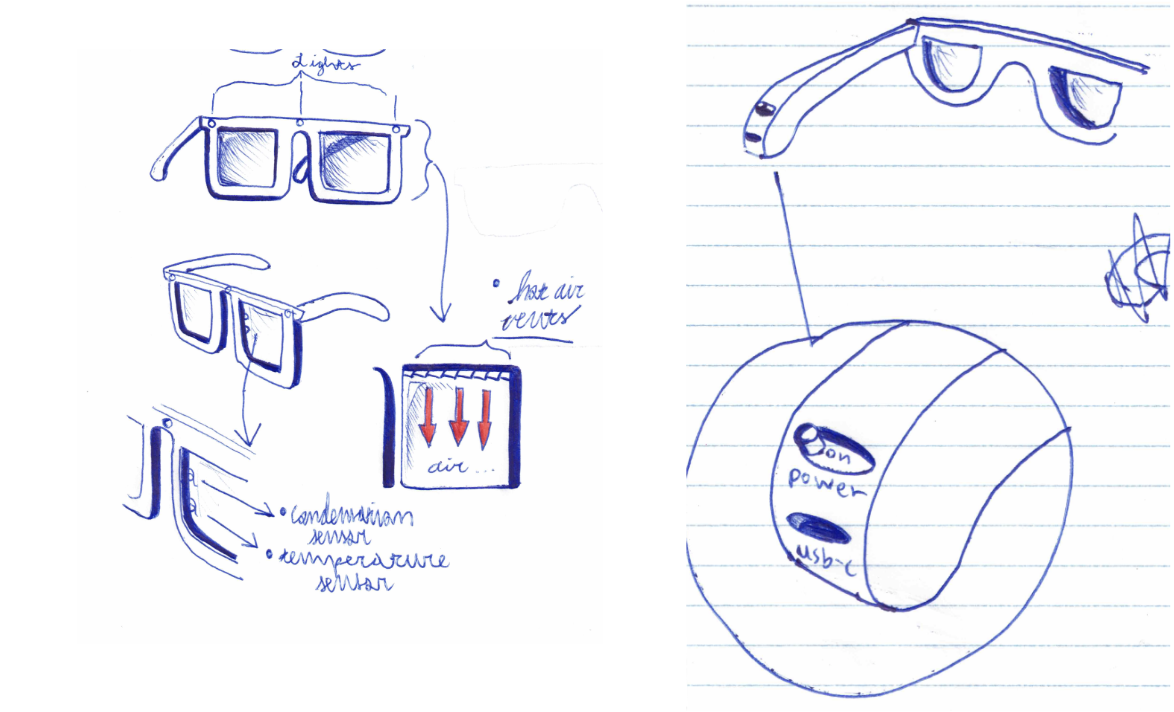 Lights
• hot air
vents
air...
• condensation
sensor
• temperature
sensor
on
power
usb-c